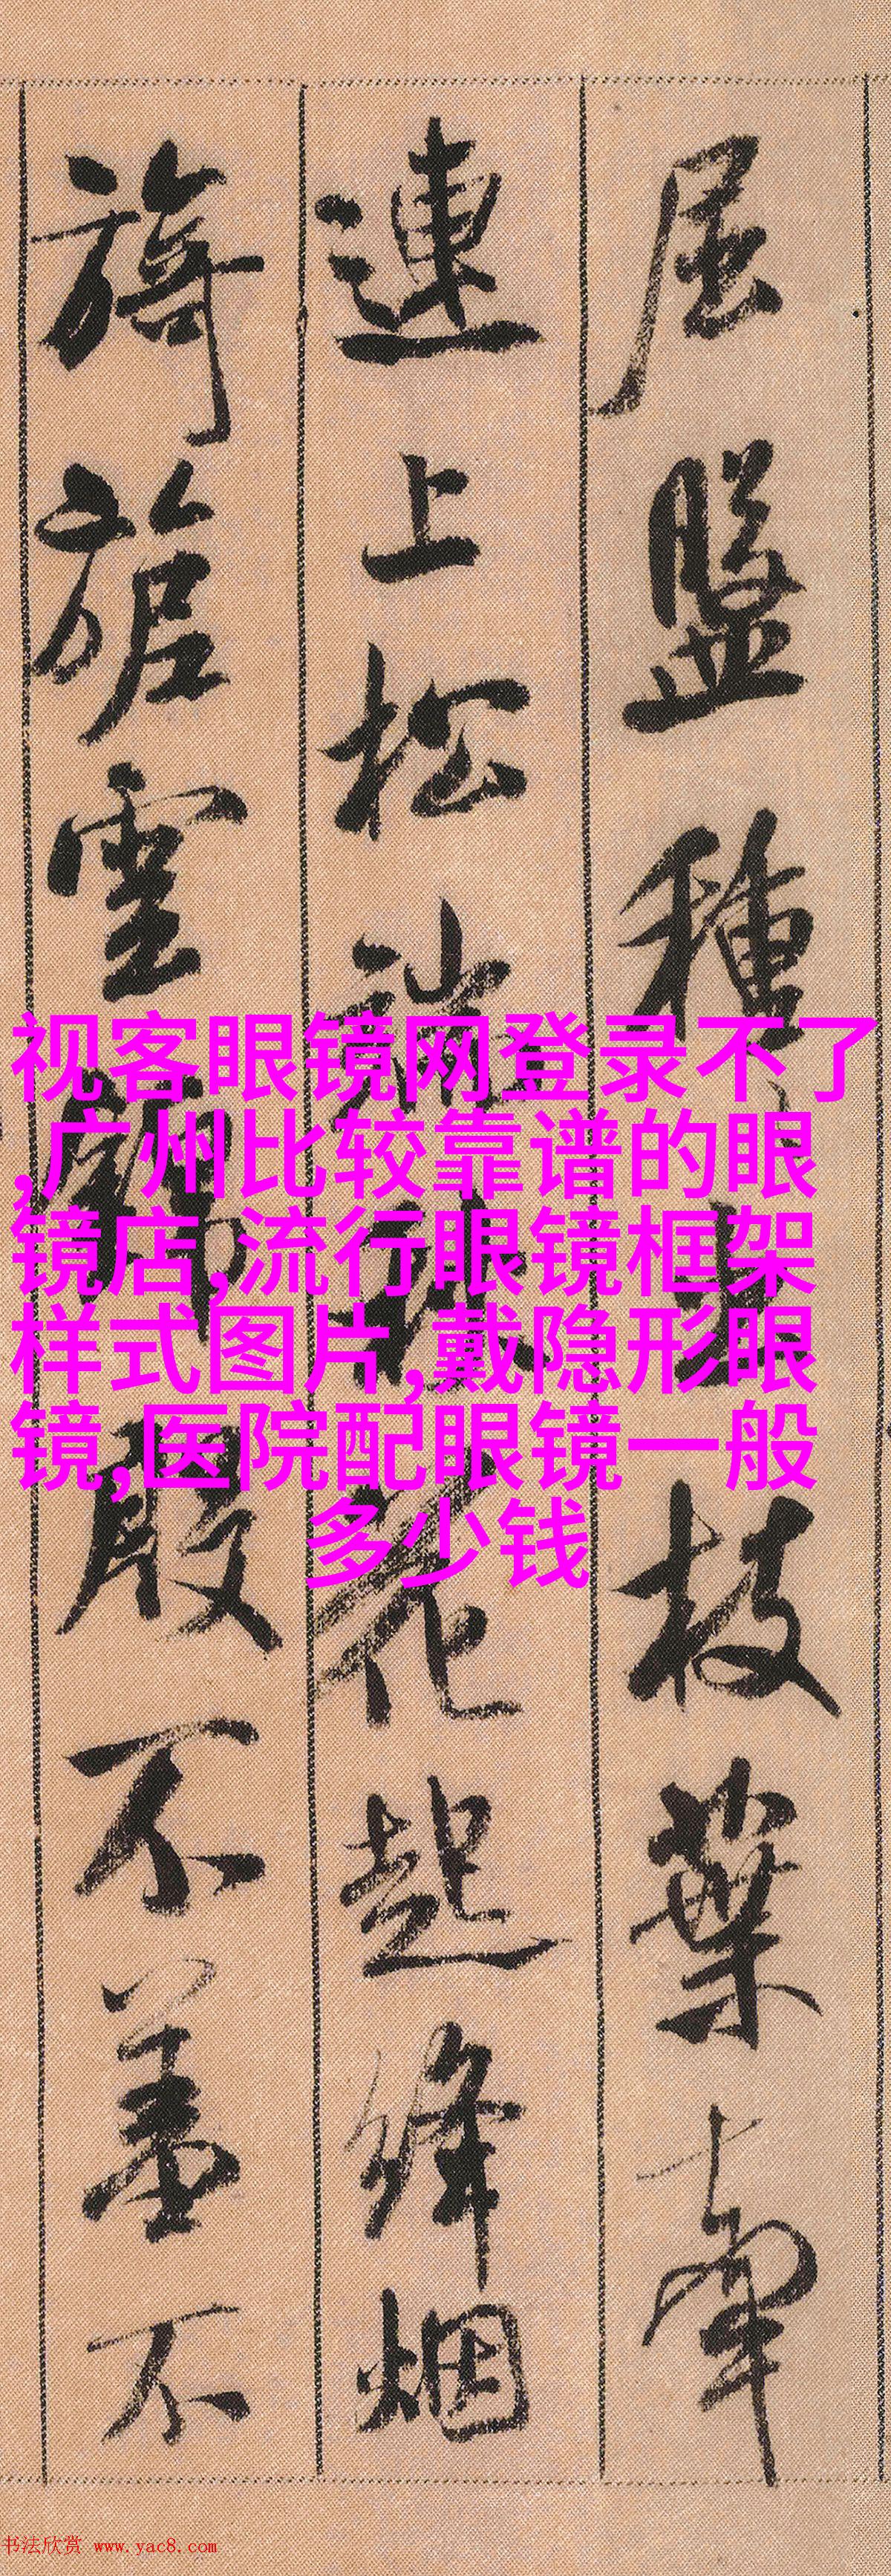 屈盤種
枝葉牽
連上松
花起絳烟
旖旎雲錦
殷不羞不
视客眼镜网登录不了
,广州比较靠谱的眼
镜店,流行眼镜框架
样式图片,戴隐形眼
镜,医院配眼镜一般
多少钱
书法欣赏 www.yac8.com